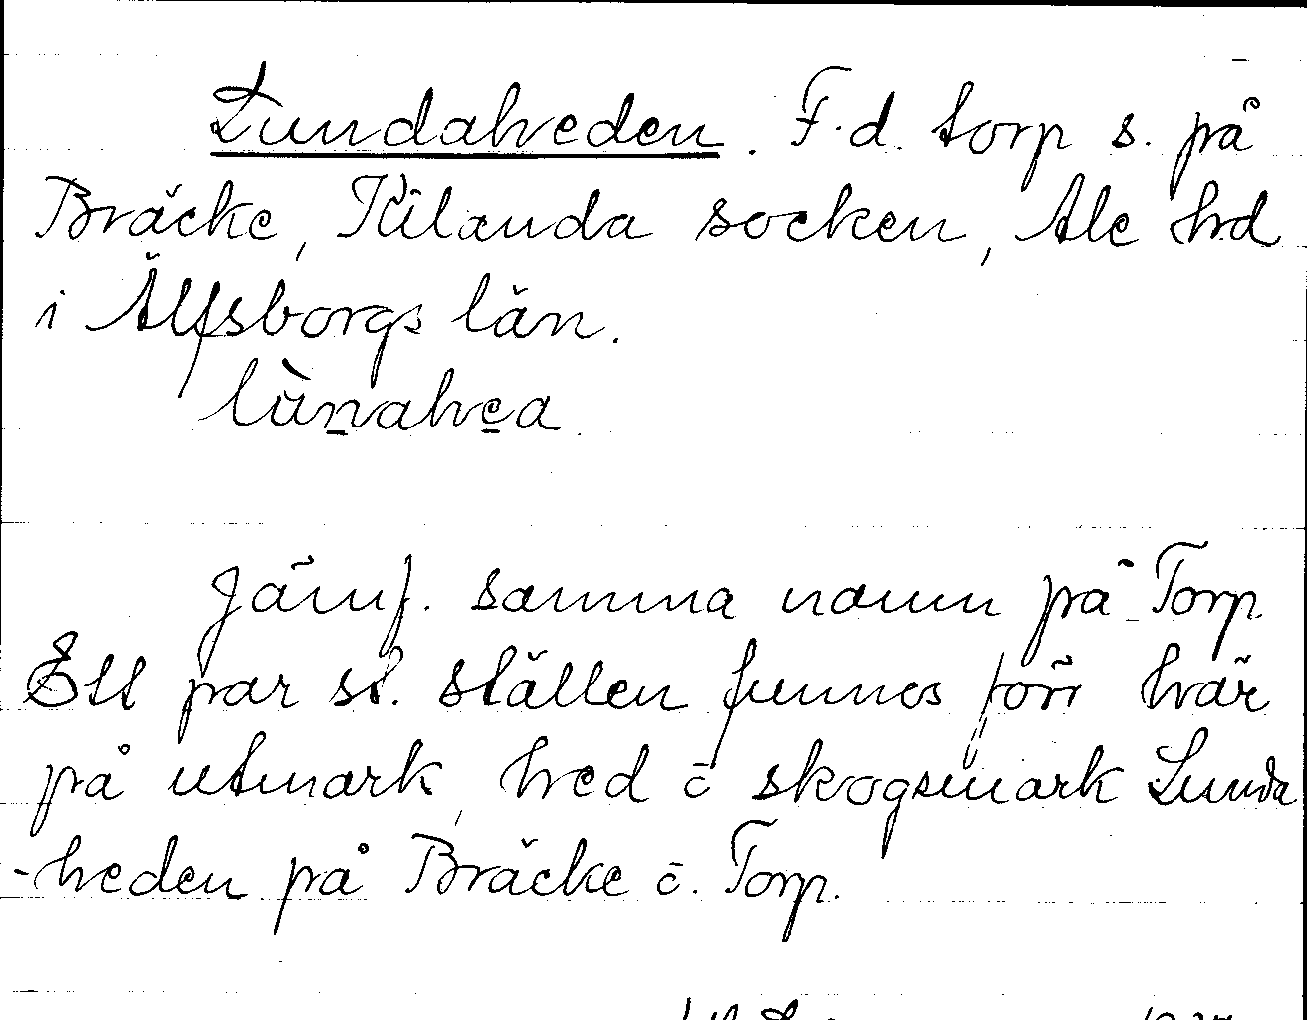 Lundaheden. F.d. torp s. på
Bräcke, Kilanda socken, Ale hd
i Älfsborgs län.
lùnahea
Jämf. samma namn på Torp.
Ett par st. ställen funnos förr här
på utmark, hed ō skogsmark Lunda
-heden på Bräcke ō. Torp.